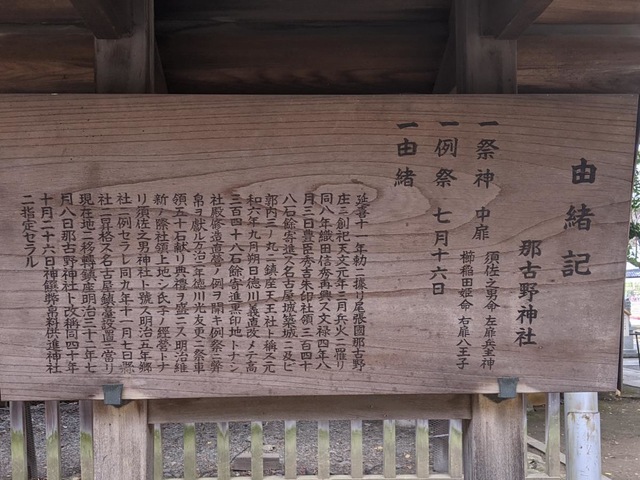 由緒記
那古野神社
一祭神 中扉 須佐之男命 左扉兵主神
櫛稲田姫命 右扉八王子
一例祭 七月十六日
一由緒
延喜十一年勅ニ據リ尾張國那古野
庄ニ創祀天文元年三月兵火ニ罹リ
同八年織田信秀再興ス文禄四年八
月三日豊臣秀吉朱印社領三百四十
八石餘寄進ス名古屋城築城ニ及ビ
郭内三ノ丸ニ鎮座天王社ト称ス元
和六年九月朔日徳川義直改メテ高
三百四十八石餘寄進黒印地トナシ
社殿修造直営ノ例ヲ開キ例祭ニ幣
帛ヲ献ビ万治二年徳川光友更ニ祭車
領五十石献リ典禮ヲ盛ニス明治維
新ノ際社領上地シ氏子ノ經営トナ
リ須佐之男神社ト號ス明治五年郷
社ニ列セラレ同九年十一月七日縣
社ニ昇格ス名古屋鎮臺設置ニ當リ
現在地ニ移轉鎮座明治三十二年七
月八日那古野神社ト改稱同四十年
十月二十六日神饌幣帛料供進神社
ニ指定セラル